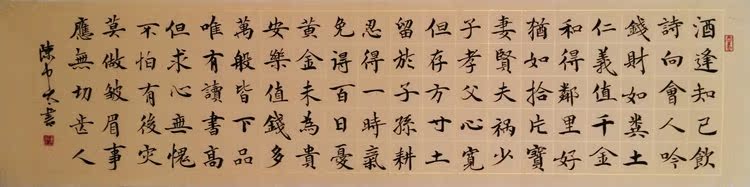 酒逢知己飲
詩向會人吟
錢財如糞土
仁義值千金
和得鄰里好
猶如拾片寶
妻賢夫祸少
子孝父心寬
但存方寸土
留於子孫耕
忍得一時氣
免得百日憂
黃金未為貴
安樂值錢多
萬般皆下品
唯有讀書高
但求心無愧
不怕有後灾
莫做皺眉事
應無切齿人
陳 書